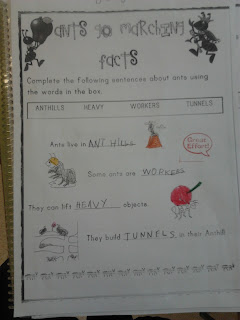 ants go marching
facts
Complete the following sentences about ants using
the words in the box.
ANTHILLS HEAVY WORKERS TUNNELS
Ants live in ANT HILLS
Great
Effort!
Some ants are WORKERS
They can lift HEAVY objects.
They build TUNNELS in their Anthill